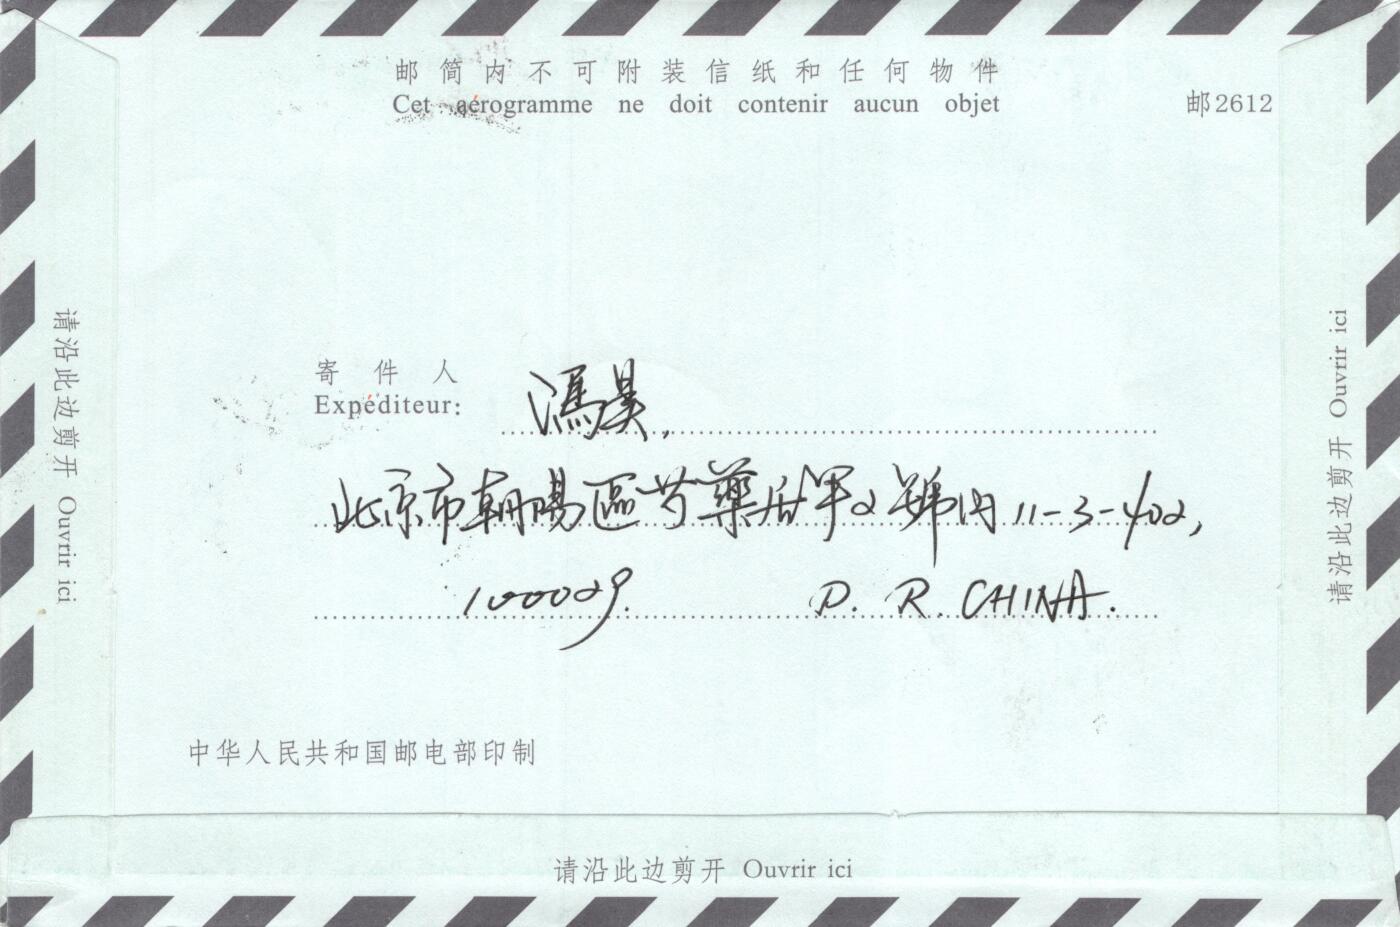 邮简内不可附装信纸和任何物件
Cet aérogramme ne doit contenir aucun objet
邮2612
请沿此边剪开 Ouvrir ici
请沿此边剪开 Ouvrir ici
寄件人
Expéditeur:
馮昊,
北京市朝陽區芍藥居甲2號內11-3-402,
100029. P. R. CHINA.
中华人民共和国邮电部印制
请沿此边剪开 Ouvrir ici